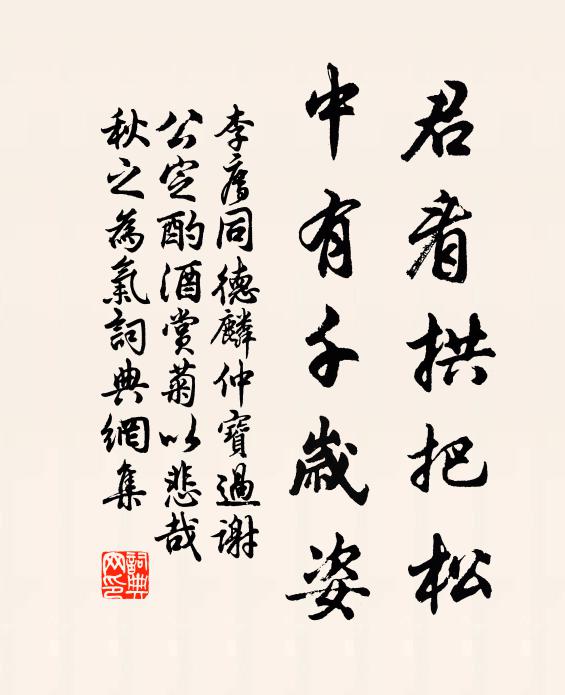 君看拱把松
中有千歲姿
李廌同德麟仲寶過謝
公定酌酒賞菊以悲哉
秋之為氣詞典網集
詞典網印